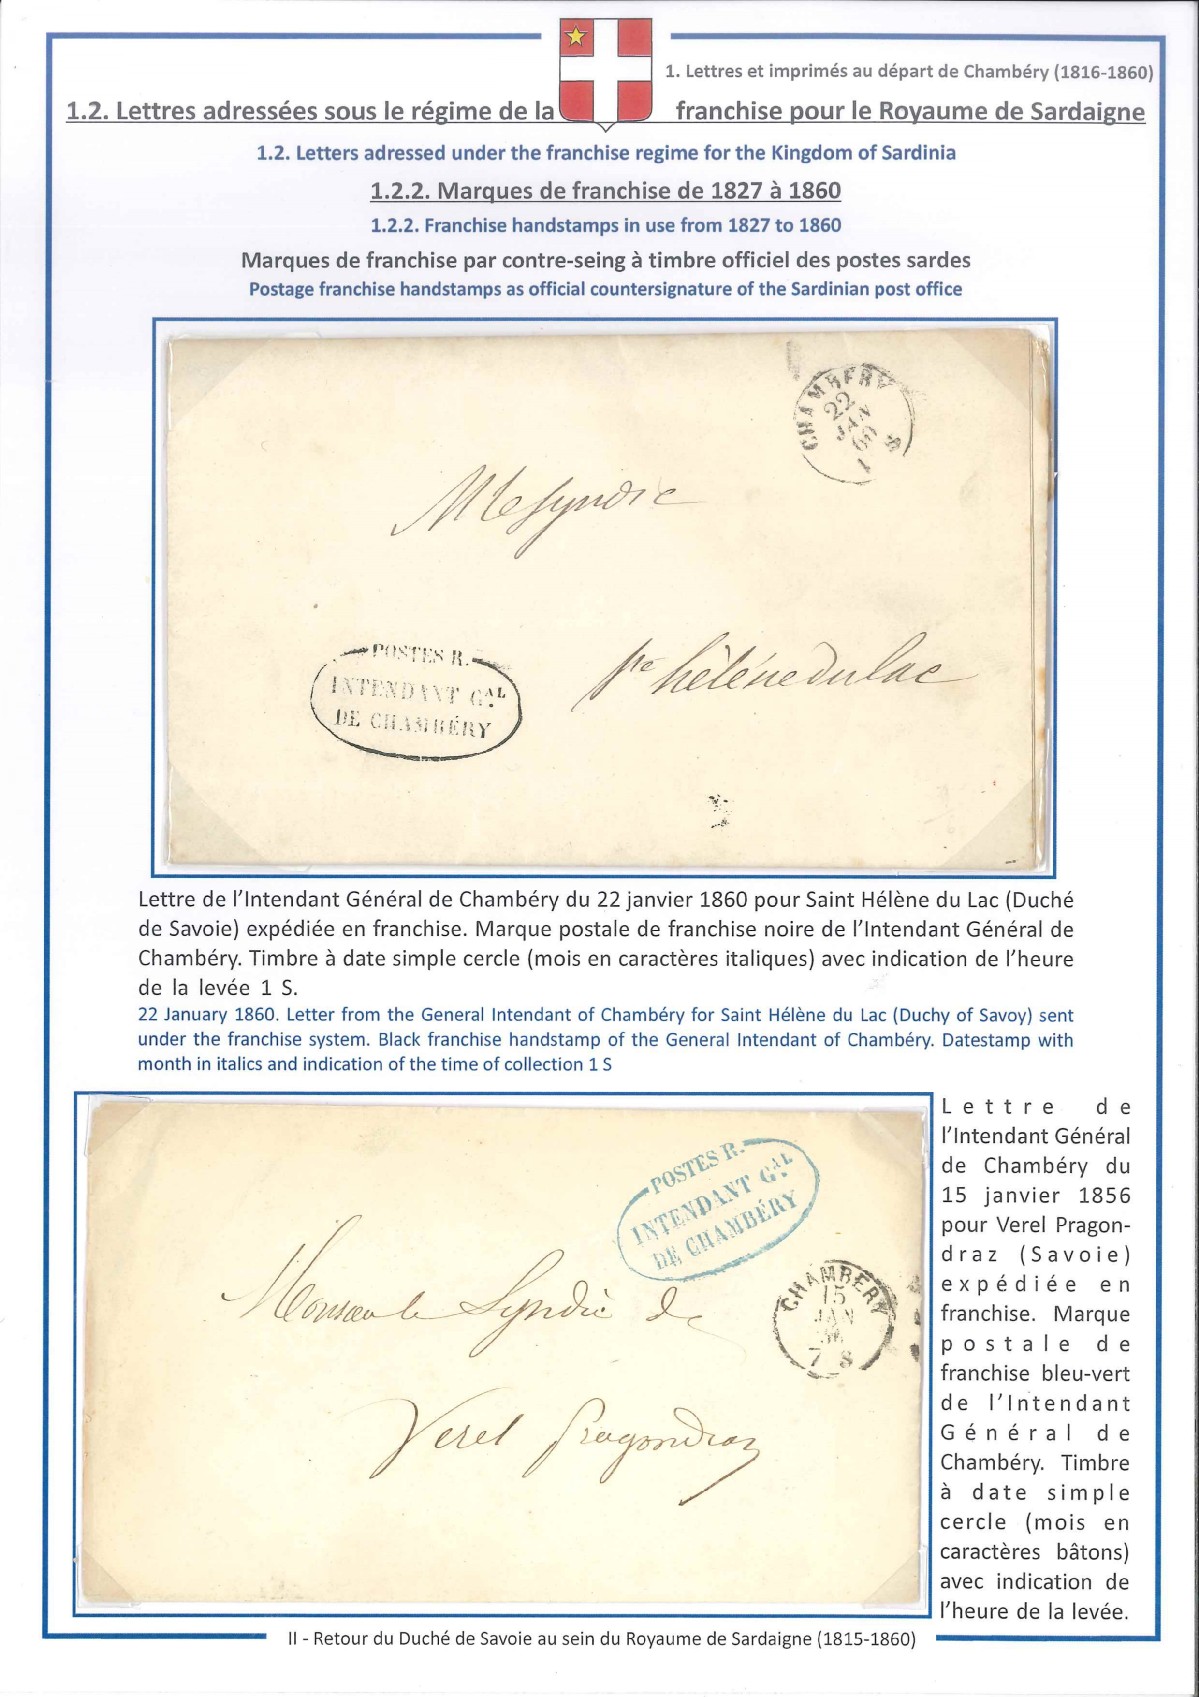 1. Lettres et imprimés au départ de Chambéry (1816-1860)
1.2. Lettres adressées sous le régime de la franchise pour le Royaume de Sardaigne
1.2. Letters adressed under the franchise regime for the Kingdom of Sardinia
1.2.2. Marques de franchise de 1827 à 1860
1.2.2. Franchise handstamps in use from 1827 to 1860
Marques de franchise par contre-seing à timbre officiel des postes sardes
Postage franchise handstamps as official countersignature of the Sardinian post office
CHAMBERY
22
JAN
60
1 S
M le Syndic
POSTES R.
INTENDANT G.AL
DE CHAMBÉRY
Ste hélène du lac
Lettre de l'Intendant Général de Chambéry du 22 janvier 1860 pour Saint Hélène du Lac (Duché
de Savoie) expédiée en franchise. Marque postale de franchise noire de l'Intendant Général de
Chambéry. Timbre à date simple cercle (mois en caractères italiques) avec indication de l'heure
de la levée 1 S.
22 January 1860. Letter from the General Intendant of Chambéry for Saint Hélène du Lac (Duchy of Savoy) sent
under the franchise system. Black franchise handstamp of the General Intendant of Chambéry. Datestamp with
month in italics and indication of the time of collection 1 S
POSTES R.
INTENDANT G.AL
DE CHAMBÉRY
CHAMBERY
15
JAN
56
7 S
Monsieur le Syndic de
Verel Pragondraz
Lettre de
l'Intendant Général
de Chambéry du
15 janvier 1856
pour Verel Pragon-
draz (Savoie)
expédiée en
franchise. Marque
postale de
franchise bleu-vert
de l'Intendant
Général de
Chambéry. Timbre
à date simple
cercle (mois en
caractères bâtons)
avec indication de
l'heure de la levée.
II - Retour du Duché de Savoie au sein du Royaume de Sardaigne (1815-1860)